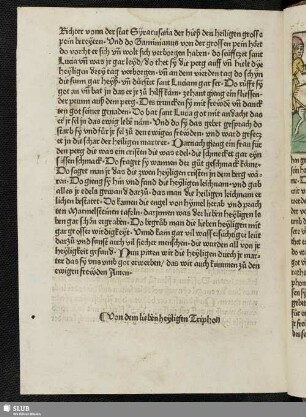 Richter vonn der stat Syracusana der hieß den heiligen grosse
pein bereyten. Vnd do Geminianus von der grossen pein hört
do vorcht er sich vnd wolt sich verborgen haben. do seüfftzet sant
Lucia vnd was jr gar leyd/ do thet sy die perg auff vnd hielt dye
heyligen drey tag verborgen. vnd an dem vierden tag do schyn
die sunn gar heyß. vnd dürstet Luciam gar ser. Do rüfft sy
got an vnd bat in das er jr zu hilff käm. zehant gieng ein fliessen-
der prunn auß dem perg. Des truncken sy mit freüden vnd danck
ten got seiner genaden. Do bat sant Lucia got mit andacht das
er jr sel in das ewig leben näm. Vnd do sy das gebet gesprach do
starb sy vnd für jr sel zu den ewigen freüden. vnd ward gesetz
et in die schar der heiligen martrer. Darnach gieng ein frau für
den perg die was ein cristin die was edel. die schmecket gar eyn
süssen schmack. Do fraget sy wannen der güt geschmack käme
Do saget man jr das die zwen heyligen cristen in dem berg wä-
ren. Do gieng sy hin vnd fand die heyligen leichnam. vnd gab
also edels gewand dar zu. das man die heyligen leichnam er
lichen bestatet. Do kamen die engel von hymel herab vnd prach
ten Marmelsteinen tafeln. darjnnen was der lieben heyligen le
ben gar schön ergraben. Do begrub man die lieben heyligen mit
gar grosser wirdigkeyt. Vnnd kam gar vil wasser süchtiger leüt
dar zu vnd sunst auch vil siecher menschen. die wurden all von jr
heyligkeit gesund. Nun pitten wir die heyligen durch jr mar-
ter das sy vns vmb got erwerben/ das wir auch kummen zu den
ewigen freüden Amen.
Von dem lieben heyligen Tripholi
SLUB